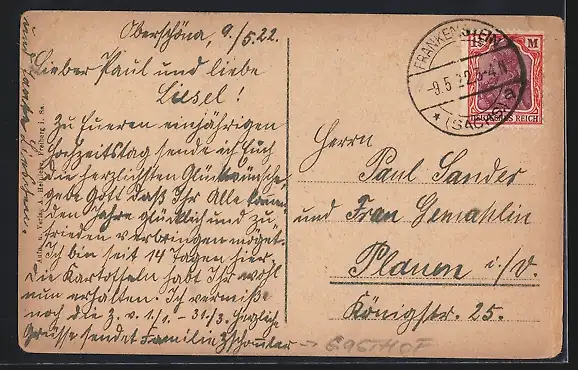 Oberschöna, 9./5.22.
Lieber Paul und liebe
Liesel!
Zu Eueren einjährigen
Hochzeitstag sende ich Euch
die herzlichsten Glückwünsche,
gebe Gott daß Ihr Alle
den Jahre glücklich und zu-
frieden verbringen möget.
Ich bin seit 14 Tagen hier.
Die Kartoffeln habt Ihr wohl
nun erhalten. Ich vermiß
noch die Z. v. 1./1. - 31./3. Herzliche
Grüsse sendet Familie
Aufn. u. Verlag A. Freiberg i. Sa.
FRANKENSTEIN
-9.5.22.
* (SACHSEN) a
M
DEUTSCHES REICH
Herrn
Paul Sander
und Frau Gemahlin
Plauen i./V.
Königstr. 25.
→ GASTHOF